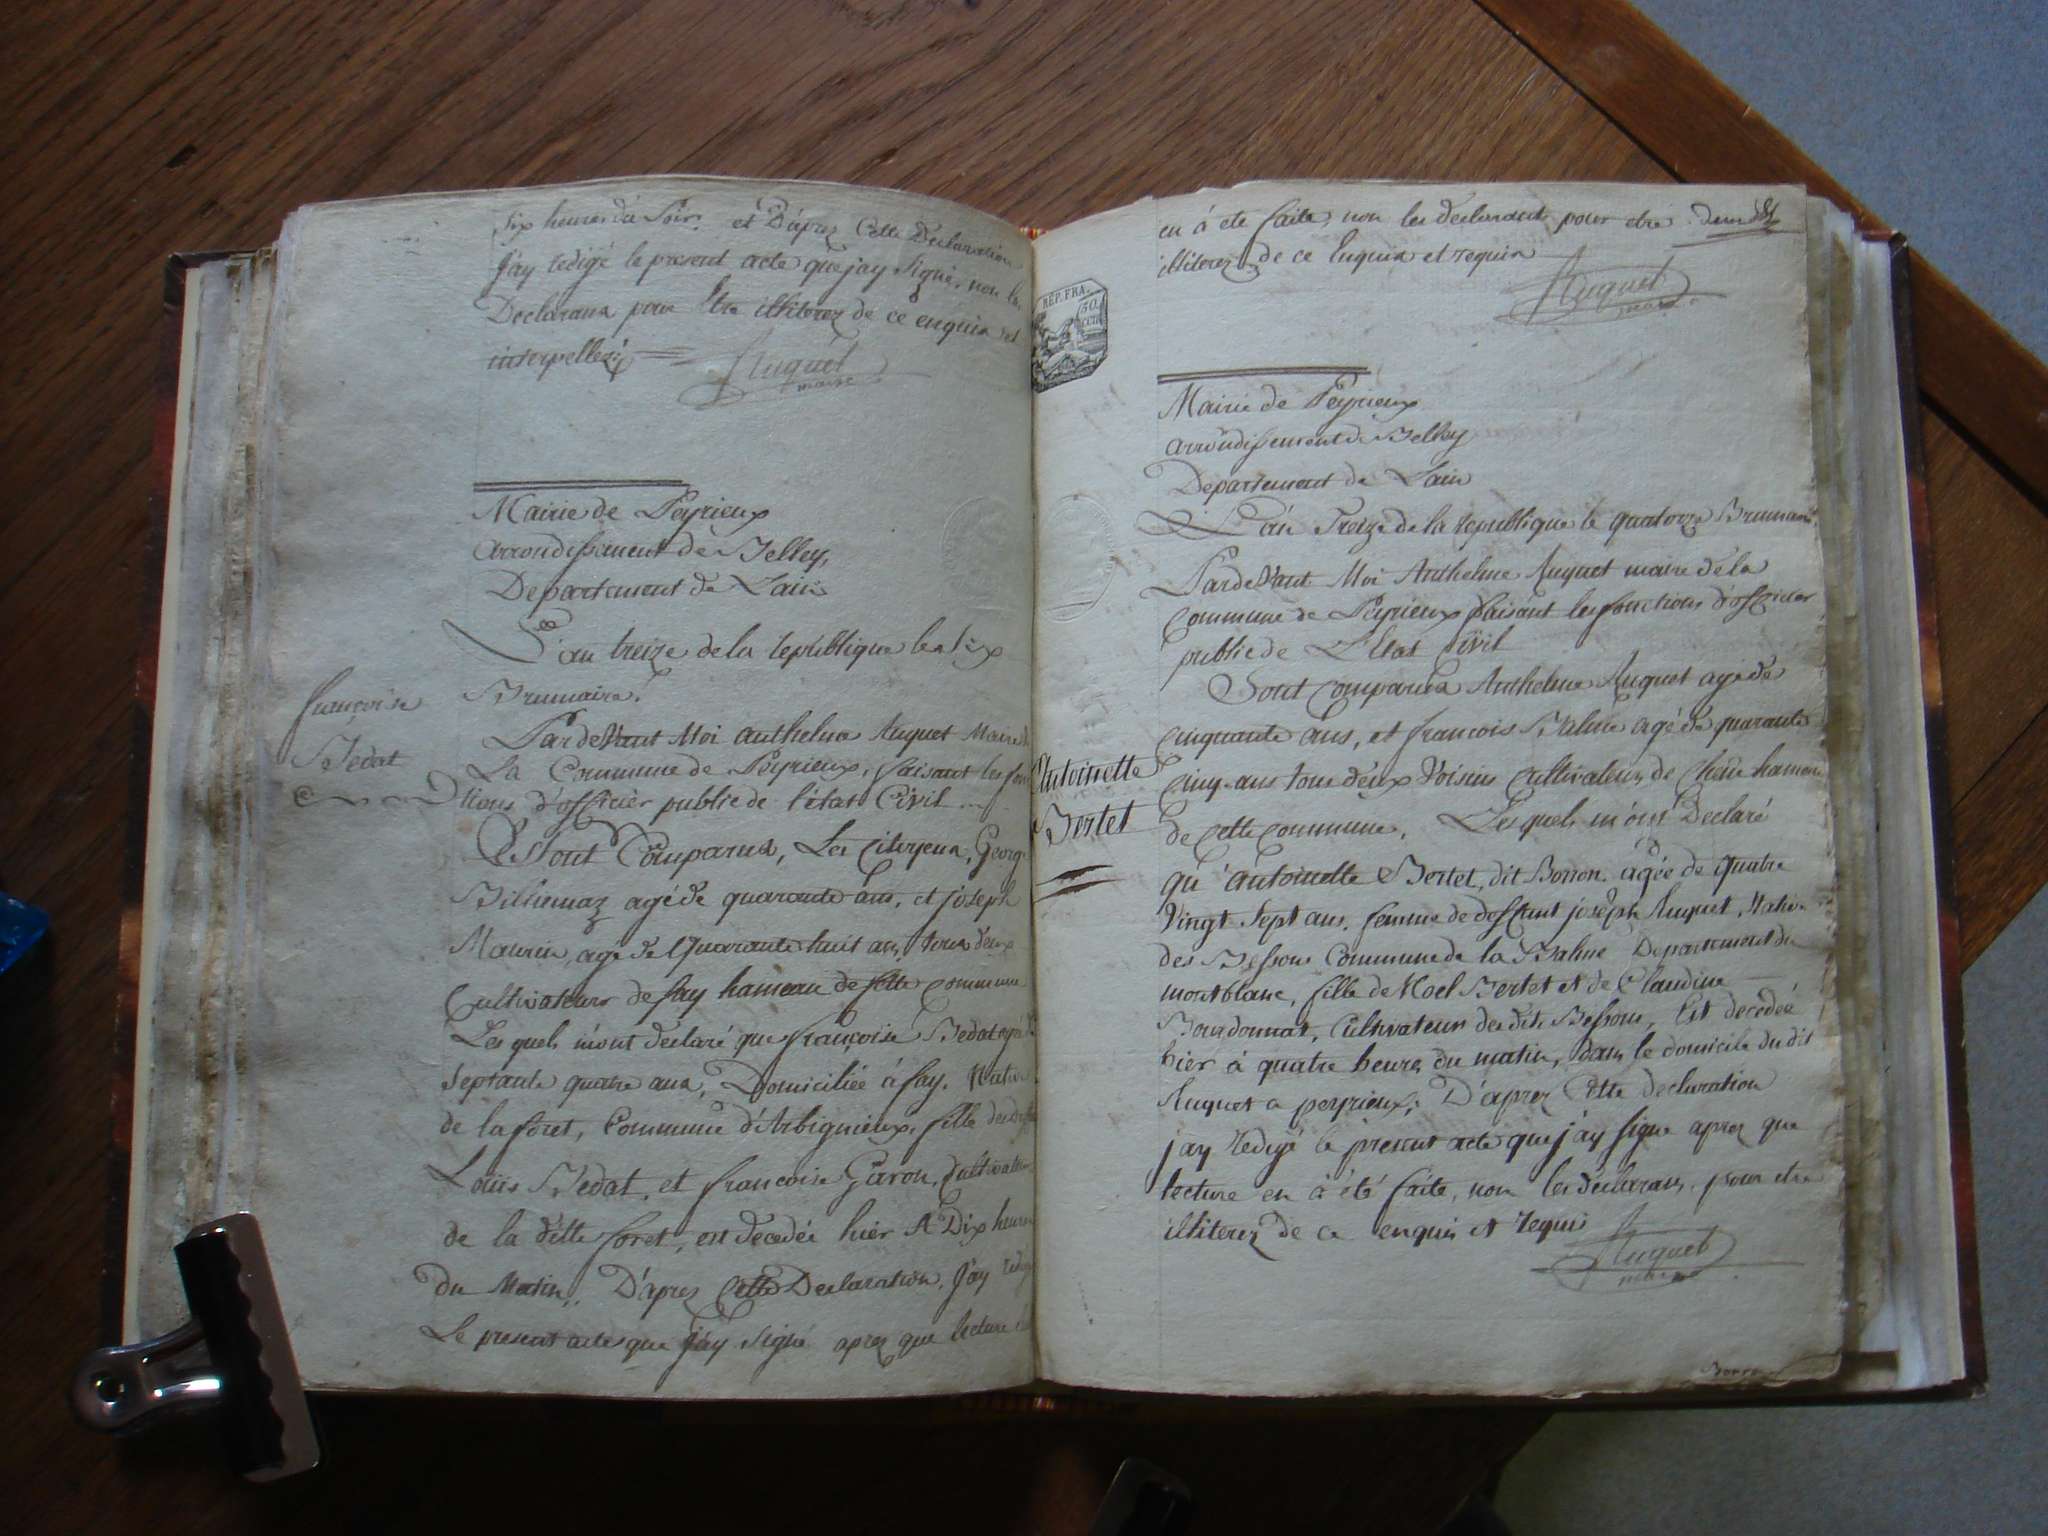 Six heures du Soir. et D'aprez Cette Declaration
J'ay redigé le present acte que jay Signé, non les
Declarans pour Etre illiterez de ce enquis et
interpellez
Auguet
maire
Mairie de Peyrieux
arrondissement de Belley,
Departement de Lain
L'an treize de la republique le six
Brumaire.
françoise
Bedat
Pardevant Moi anthelme Auguet Maire de
La Commune de Peyrieux, faisant les fonc
tions d'officier public de l'état Civil
Sont Comparus, Les Citoyens, George
Billionnaz agé de quarante ans, et joseph
Maurin, agé de Quarante huit ans, tous deux
Cultivateurs de fay hameau de sette Commune
Les quels m'ont declaré que françoise Bedat agée de
Septante quatre ans, Domiciliée à fay, Native
de la foret, Commune d'Arbignieux, fille de
Louis Bedat, et francoise Garon, Cultivateurs
de la ditte foret, est decedée hier A Dix heures
du Matin,. D'aprez Cette Declaration, J'ay redigé
Le present acte que J'ay Signé aprez que lecture
en à eté faite, non les declarants pour etre
illiterez de ce Enquis et requis
Auguet
maire
REP. FRA.
50
Mairie de Peyrieux
arrondissement de Belley
Departement de Lain
L'an Treize de la republique le quatorze Brumaire.
Pardevant Moi Anthelme Auguet maire de la
Commune de Peyrieux faisant les fonctions d'officier
public de L'Etat Civil
Sont Comparus Anthelme Auguet agé de
cinquante ans, et francois Balme agé de quarante
cinq ans tous deux Voisins Cultivateurs de hameau
de cette Commune, Lesquels m'ont Declaré
Antoinette
Bertet
qu'antoinette Bertet, dit Borron agée de Quatre
Vingt Sept ans, femme de deffunt joseph Auguet, Native
des Bessons Commune de la Balme Departement du
montblanc, fille de Noel Bertet et de Claudine
Bourdonnat, Cultivateur desdits Bessons, Est decedée
hier à quatre heures du matin, dans le domicile du dit
Auguet a peyrieux; D'aprez Cette declaration
j'ay redigé le present acte que j'ay signe aprez que
lecture en à été faite, non les declarans pour etre
illiterez de ce enquis et requis
Auguet
maire